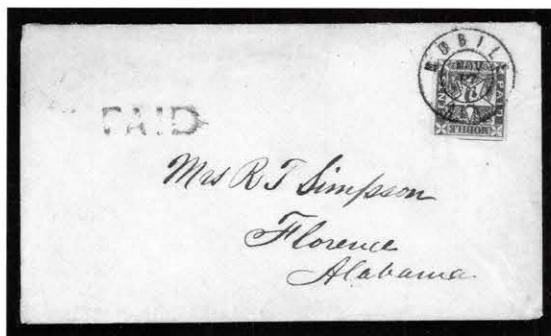 MOBIL
NOV
PAID
MOBILE
PAID
Mrs R T Simpson
Florence
Alabama